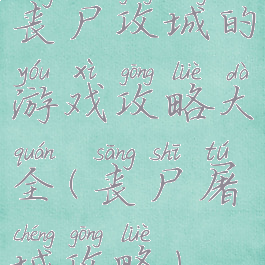 丧尸攻城的
yóu xì gōng lüè dà
游戏攻略大
quán sāng shī tú
全(丧尸屠
chéng gōng lüè
城攻略)